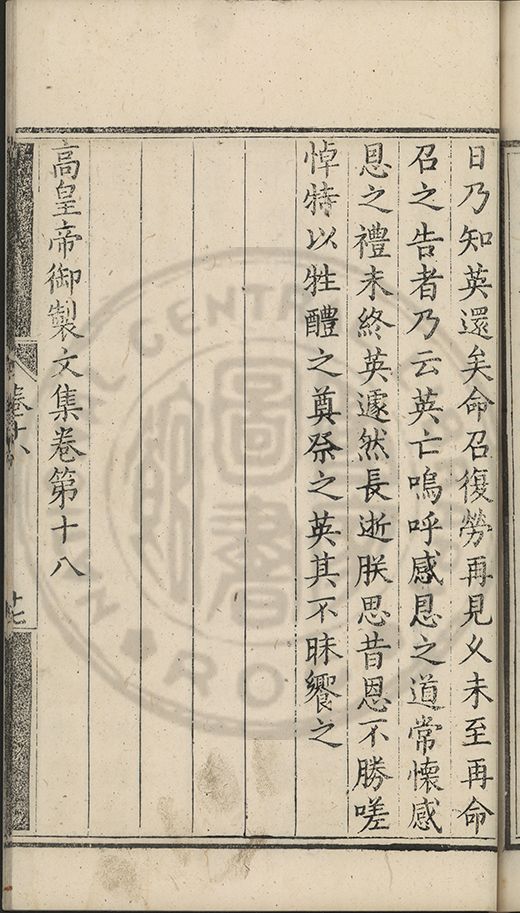 日乃知英還矣命召復勞再見乂未至再命
召之告者乃云英亡嗚呼感恩之道常懷感
恩之禮未終英遽然長逝朕思昔恩不勝嗟
悼特以牲醴之奠祭之英其不昧饗之
高皇帝御製文集卷第十八
卷十八
廿七
圖書
CENTRAL